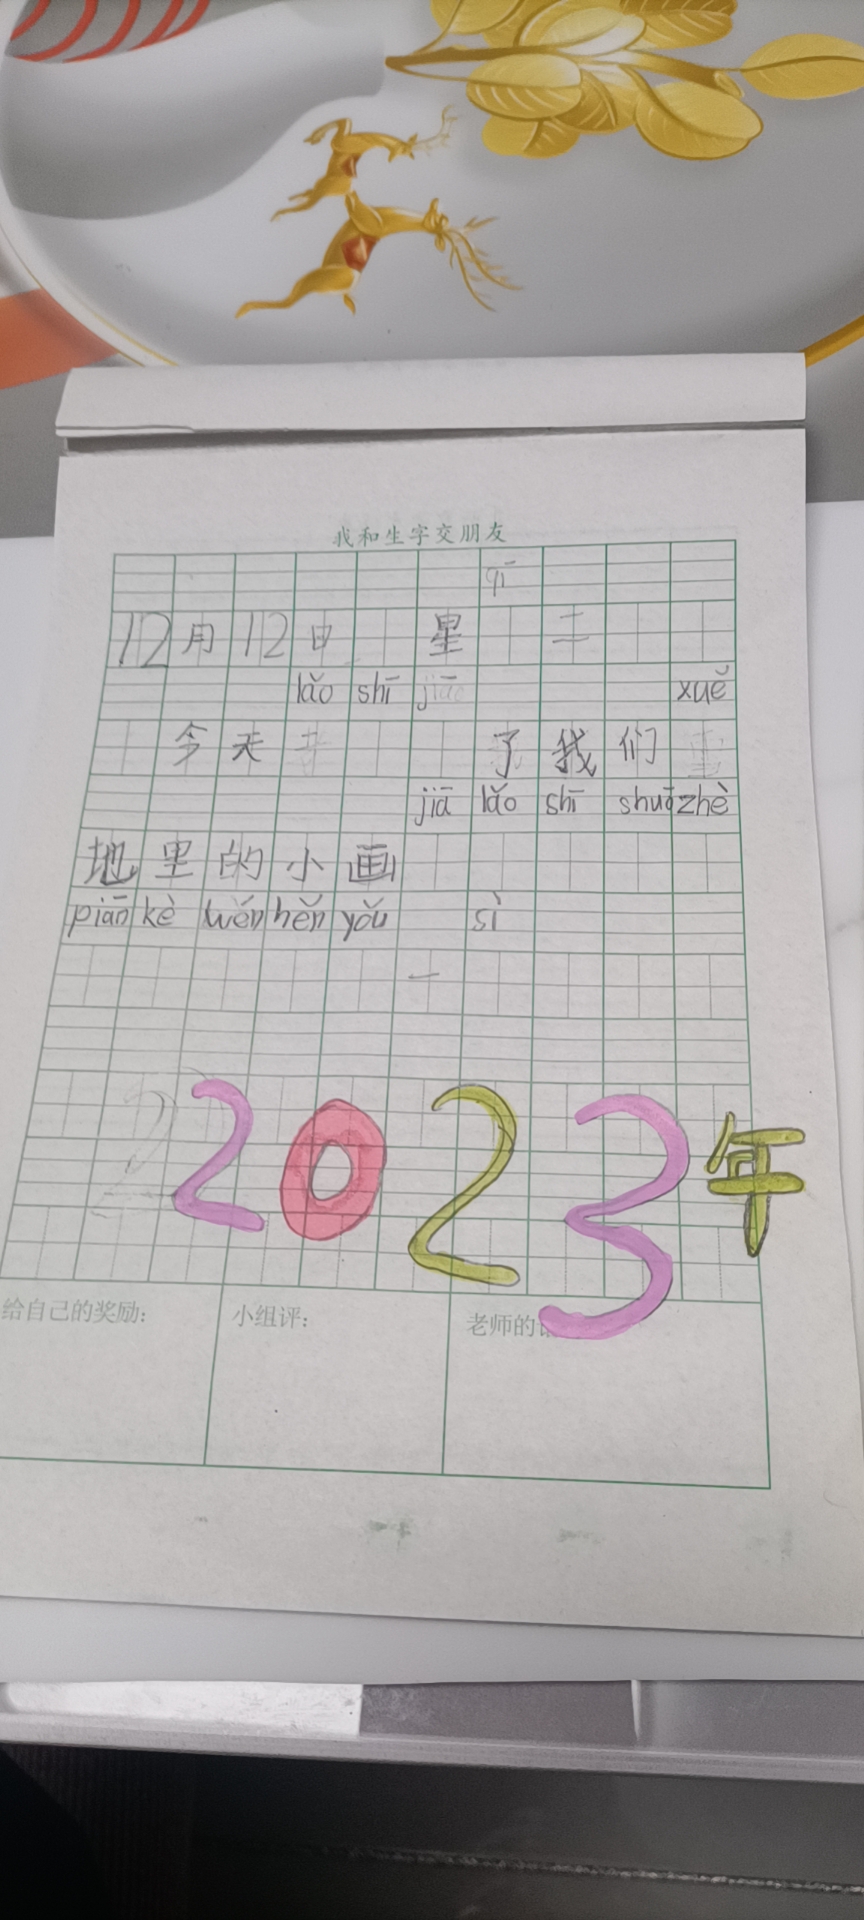 我和生字交朋友
qī
12月12日 星 二
lǎo shī jiāo xuě
今天 了我们
jiā lǎo shī shuō zhè
地里的小画
piān kè wén hěn yǒu sì
一
2023年
给自己的奖励: 小组评: 老师的